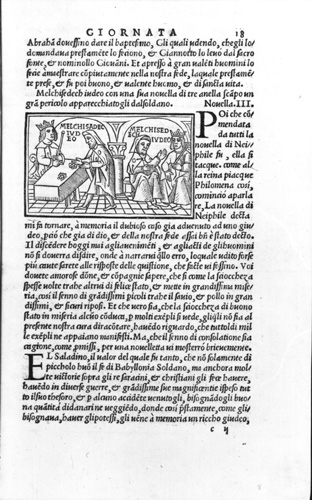 GIORNATA 18
Abrahã douessino dare il baptesimo, Gli quali udendo, chegli lo
domandaua prestamẽte lo feciono, & Giannotto lo leuo dal sacro
fonte, & nominollo Giouãni. Et apresso à gran ualẽti huomini lo
fece amaestrare cõpiutamente nella nostra fede, laquale prestamẽ
te prese, & fu poi buono, & ualente huomo, & di sancta uita.
Melchisedech iudeo con una sua nouella di tre anella scãpo un
gran pericolo apparecchiatogli dalsoldano. Nouella. III.
MELCHISADEC
IVDEO
MELCHISED
IVDEO
POi che cõ
mendata
da tutti la
nouella di Nei
phile fu, ella si
tacque. come al
la reina piacque
Philomena cosi,
cominciò aparla
re. La nouella di
Neiphile decta
mi fa tornare, à memoria il dubioso caso gia aduenuto ad uno giu
deo, paò che gia di dio, & della nostra fede assai bñ è stato decto.
Il discẽdere hoggi mai agliauenimẽti, & agliatti de glihuomini
nõ si douerra disdire, onde à narrarui qllo ero, loquale udito forse
piu caute sarete alle risposte delle quistione, che facte ui fossino. Voi
douete amorose dõne, & cõpagnie sapere, che si come la sciocheza
spesse uolte trahe altrui di felice stato, & mette in grandissima mise
ria, cosi il senno di grãdissimi picoli trahe il sauio, & pollo in gran
dissimi, & sicuri riposi. Et che uero sia, che la sciocheza di buono
stato in miseria alcũo cõduca, p molti exẽpli si uede, gliqli nõ fia al
presente nostra cura diracõtare, hauẽdo riguardo, che tuttoldi mil
le exẽpli ne appaiano manifesti. Ma, che il senno di consolatione sia
cagione, come pmissi, per una nouelletta ui mosterrò brieuemente.
EL Saladino, il ualor del quale fu tanto, che nõ solamente di
piccholo huõ il fe di Babyllonia Soldano, ma anchora mol
te uictorie sopra gli re saracini, & christiani gli fece hauere,
hauẽdo in diuerse guerre, & grãdissime sue magnificentie speso tut
to il suo thesoro, & p alcuno accidẽte uenutogli, bisognãdogli buo
na quãtità didanari ne ueggiẽdo, donde cosi pstamente, come gli
bisognaua, hauer glipotessi, gli uẽne à memoria un riccho giudeo,
c ij